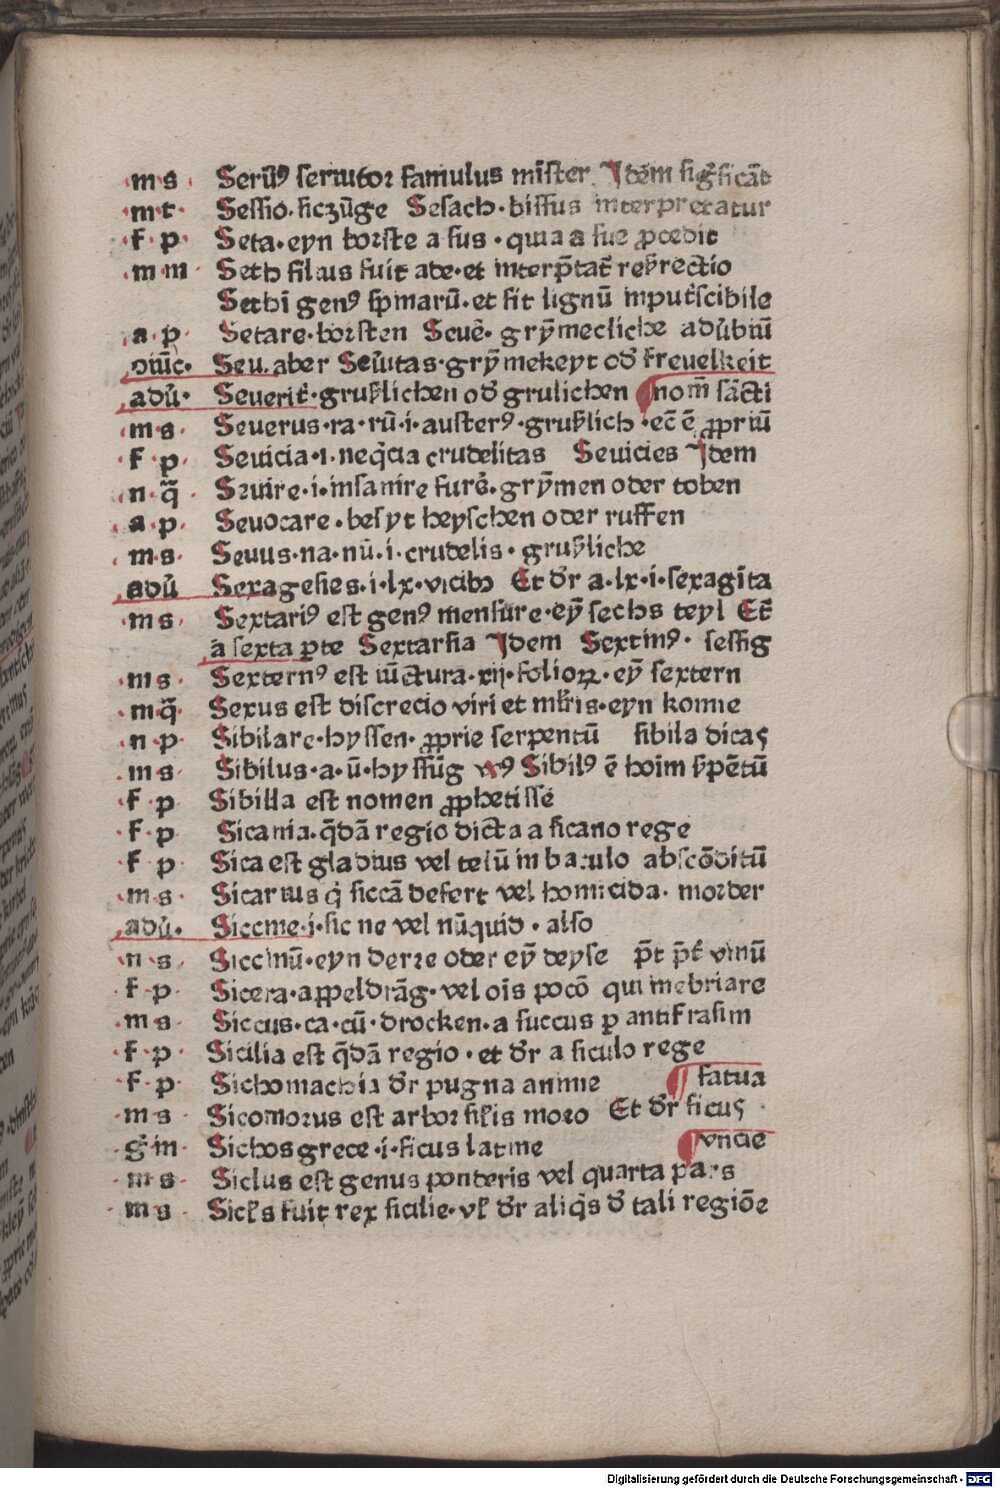 m s Seru᷒ꝰ seruitor famulus mīster Idem sigficād
m t Sessio. siczūge Sesach. bissus interpretatur
f p Seta. eyn borste a sus. quia a sue ꝓcedit
m m Seth filius fuit ade. et interp̄tat᷒ res᷒rectio
Sethī genꝰ spīnarū. et sit lignū input᷒scibile
a p Setare. borsten Seuē. grȳmecliche aduerbiū
Seu. aber Seu᷒itas. grȳmekeyt od᷒ freuelkeit
adu᷒. Seuerit᷒. grus᷒lichen od᷒ grulichen ¶ nom̄ sācti
m s. Seuerus. ra. rū. i. austerꝰ. grus᷒lich. ec̄ ē ꝓpriū
f p. Seuicia. i. neq̇cia crudelitas Seuicies Idem
n q̄ Seuire. i. insanire furē. grȳmen oder toben
a p. Seuocare. besyt heyschen oder ruffen
m s. Seuus. na. nū. i. crudelis. grus᷒liche
adu᷒ Sexagesies. i. lx. vicib᷒ Et dr̄ a. lx. i. sexagīta
m s. Sextariꝰ est genꝰ mensure. eȳ sechs teyl Et dr̄
a sexta ꝑte Sextarsia Idem Sextinꝰ. sessig
m s Sexternꝰ est iūctura. xij. folioꝝ. eȳ sextern
m q̄ Sexus est discrecio viri et ml᷒ris. eyn konne
n p Sibilare. hyssen. ꝓprie serpentū sibila dicas
m s Sibilus. a. ū. hyssūg v᷒sꝰ Sibilꝰ ē hoīm s᷒pētū
f p Sibilla est nomen ꝓphetisse
f p Sicania. q̄dā regio dicta a sicano rege
f p Sica est gladius vel telū in baculo abscōditū
m s Sicarius q̇ siccā defert vel homicida. morder
adu᷒. Siccine. i. sic ne vel nūquid. also
n s Siccinū. eyn derre oder eȳ deyse p̄t p̄t᷒ vinū
f p Sicera. appeldrāg. vel oīs pocō qui inebriare
m s Siccus. ca. cū. drocken. a succus ꝑ antifrasim
f p Sicilia est q̄dā regio. et dr̄ a siculo rege
f p Sichomachia dr̄ pugna anime ¶ fatua
m s Sicomorus est arbor sil᷒is moro Et dr̄ ficus
g in Sichos grece. i. ficus latine ¶ vncie
m s Siclus est genus ponderis vel quarta pars
m s Sicl᷒s fuit rex sicilie. vl᷒ dr̄ aliq̇s d᷒ tali regiōe
Digitalisierung gefördert durch die Deutsche Forschungsgemeinschaft - DFG